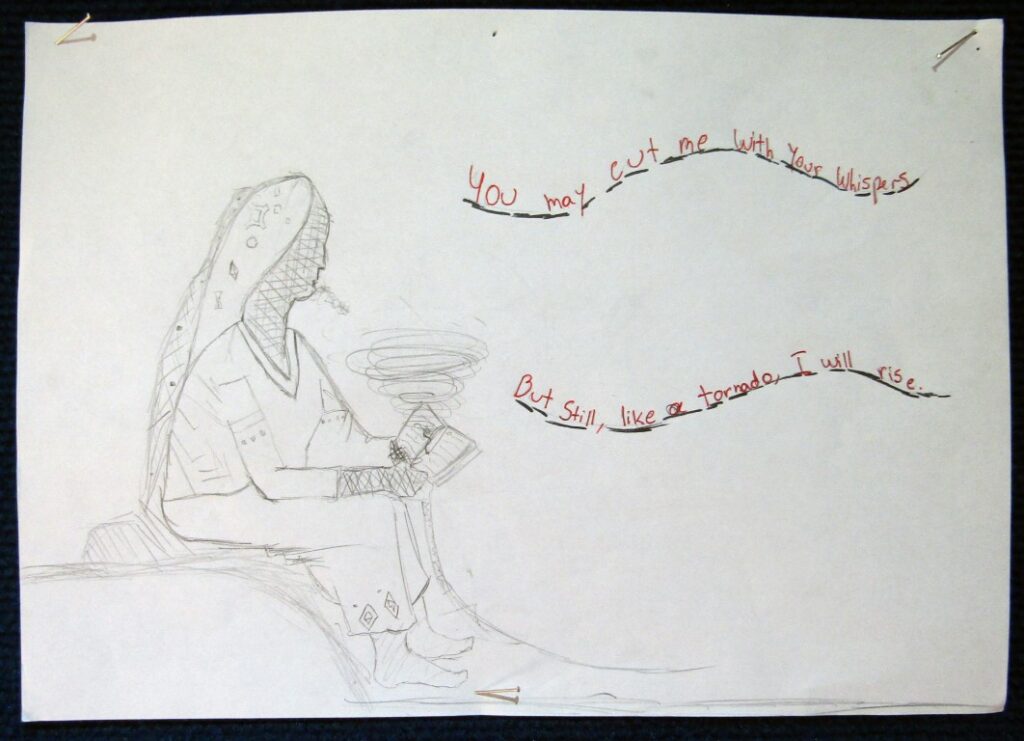 You may cut me with Your Whispers
But Still, like a tornado, I will rise.